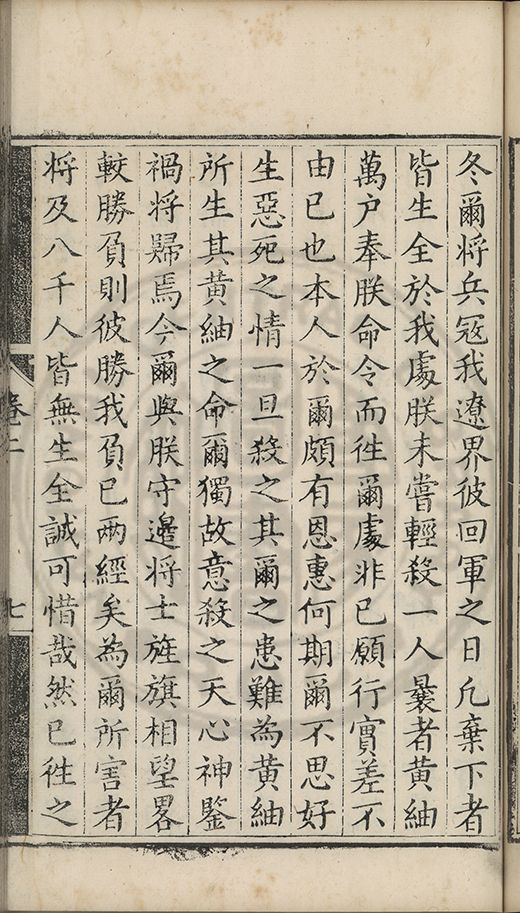 冬爾将兵冦我遼界彼回軍之日凡棄下者
皆生全於我處朕未嘗輕殺一人曩者黃紬
萬户奉朕命令而徃爾處非已願行實差不
由已也本人於爾頗有恩惠何期爾不思好
生惡死之情一旦殺之其爾之患難為黃紬
所生其黃紬之命爾獨故意殺之天心神鑒
禍将歸焉今爾與朕守邊将士旌旗相望畧
較勝負則彼勝我負已兩經矣為爾所害者
将及八千人皆無生全誠可惜哉然已徃之
卷二
七